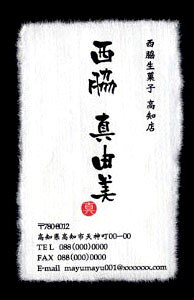 西脇生菓子 高知店
西脇 真由美
真
〒780-8012
高知県高知市大神町00-00
TEL 088(000)0000
FAX 088(000)0000
E-mail mayumayu001@xxxxxxx.com